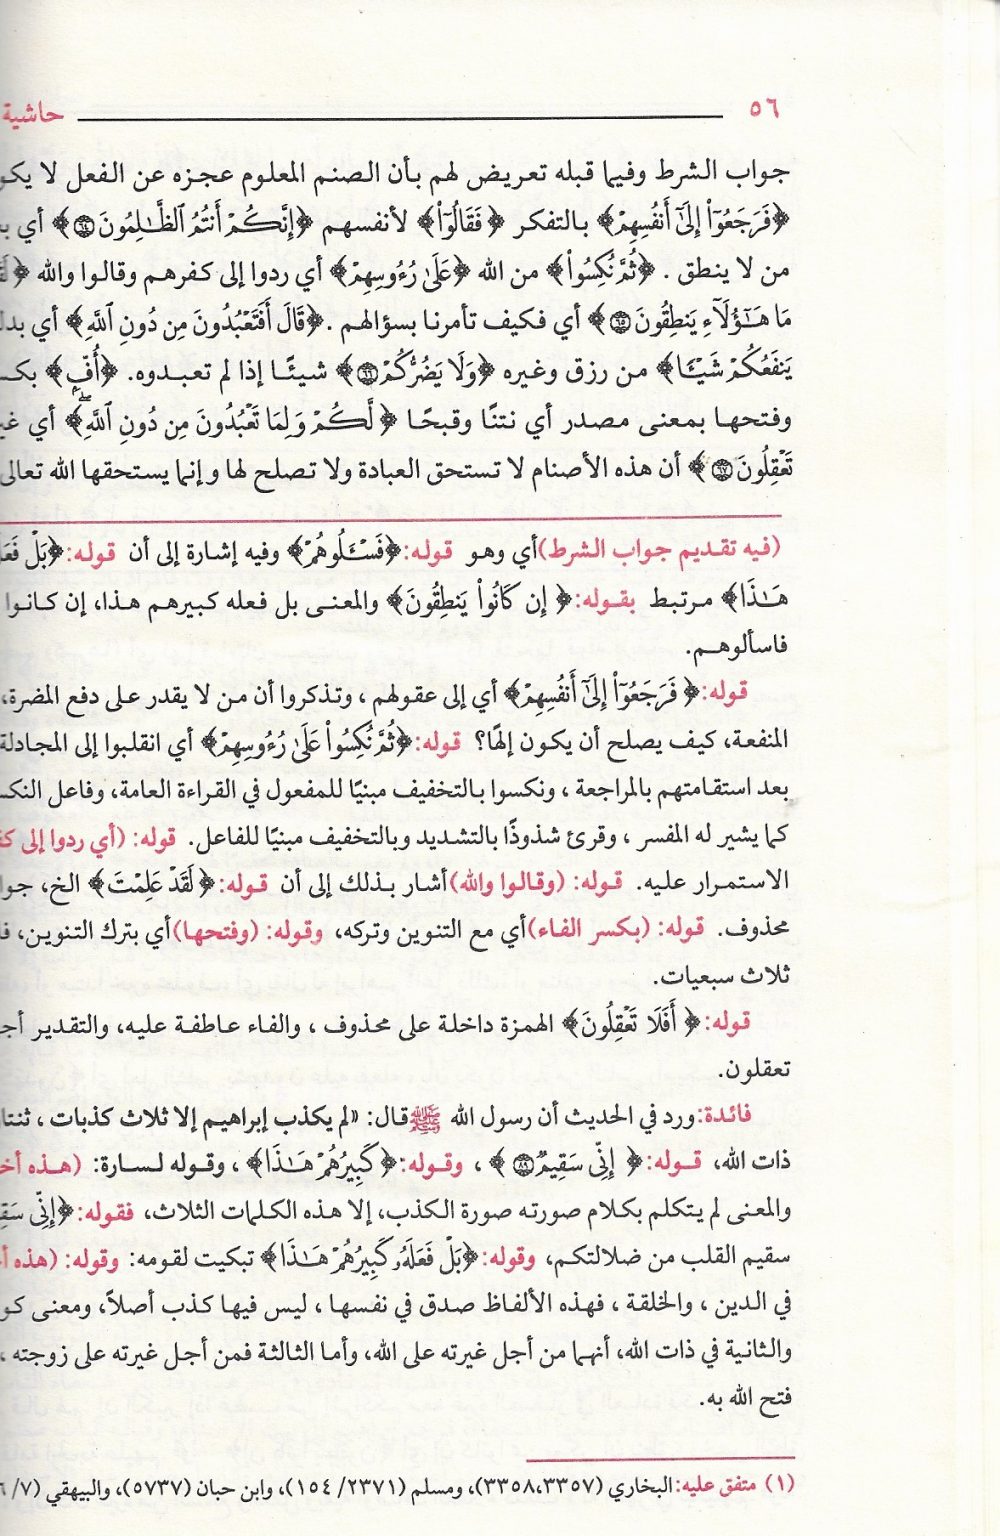 ٥٦ حاشية
جواب الشرط وفيما قبله تعريض لهم بأن الصنم المعلوم عجزه عن الفعل لا
﴿فَرَجَعُوٓا۟ إِلَىٰٓ أَنفُسِهِمْ﴾ بالتفكر ﴿فَقَالُوٓا۟﴾ لأنفسهم ﴿إِنَّكُمْ أَنتُمُ ٱلظَّـٰلِمُونَ ٦٤﴾ أي
من لا ينطق . ﴿ثُمَّ نُكِسُوا۟﴾ من الله ﴿عَلَىٰ رُءُوسِهِمْ﴾ أي ردوا إلى كفرهم وقالوا والله
مَا هَـٰٓؤُلَآءِ يَنطِقُونَ ٦٥﴾ أي فكيف تأمرنا بسؤالهم . ﴿قَالَ أَفَتَعْبُدُونَ مِن دُونِ ٱللَّهِ﴾ أي
يَنفَعُكُمْ شَيْـًٔا﴾ من رزق وغيره ﴿وَلَا يَضُرُّكُمْ ٦٦﴾ شيئًا إذا لم تعبدوه. ﴿أُفٍّ﴾
وفتحها بمعنى مصدر أي نتنًا وقبحًا ﴿لَّكُمْ وَلِمَا تَعْبُدُونَ مِن دُونِ ٱللَّهِ ۖ﴾ أي
تَعْقِلُونَ ٦٧﴾ أن هذه الأصنام لا تستحق العبادة ولا تصلح لها وإنما يستحقها الله تعالى
(فيه تقديم جواب الشرط) أي وهو قوله: ﴿فَسْـَٔلُوهُمْ﴾ وفيه إشارة إلى أن قوله: ﴿بَلْ
هَـٰذَا﴾ مرتبط بقوله: ﴿إِن كَانُوا۟ يَنطِقُونَ﴾ والمعنى بل فعله كبيرهم هذا، إن كانوا
فاسألوهم.
قوله: ﴿فَرَجَعُوٓا۟ إِلَىٰٓ أَنفُسِهِمْ﴾ أي إلى عقولهم ، وتذكروا أن من لا يقدر على دفع المضرة،
المنفعة، كيف يصلح أن يكون إلهًا؟ قوله: ﴿ثُمَّ نُكِسُوا۟ عَلَىٰ رُءُوسِهِمْ﴾ أي انقلبوا إلى المجادلة
بعد استقامتهم بالمراجعة ، ونكسوا بالتخفيف مبنيًا للمفعول في القراءة العامة، وفاعل
كما يشير له المفسر ، وقرئ شذوذًا بالتشديد وبالتخفيف مبنيًا للفاعل. قوله: (أي ردوا إلى
الاستمرار عليه. قوله: (وقالوا والله) أشار بذلك إلى أن قوله: ﴿لَقَدْ عَلِمْتَ﴾ الخ،
محذوف. قوله: (بكسر الفاء) أي مع التنوين وتركه، وقوله: (وفتحها) أي بترك التنوين،
ثلاث سبعيات.
قوله: ﴿أَفَلَا تَعْقِلُونَ﴾ الهمزة داخلة على محذوف ، والفاء عاطفة عليه، والتقدير
تعقلون.
فائدة: ورد في الحديث أن رسول الله ﷺ قال: «لم يكذب إبراهيم إلا ثلاث كذبات ،
ذات الله، قوله: ﴿إِنِّى سَقِيمٌ ٨٩﴾ ، وقوله: ﴿كَبِيرُهُمْ هَـٰذَا﴾ ، وقوله لسارة: (هذه
والمعنى لم يتكلم بكلام صورته صورة الكذب، إلا هذه الكلمات الثلاث، فقوله: ﴿إِنِّى
سقيم القلب من ضلالتكم، وقوله: ﴿بَلْ فَعَلَهُۥ كَبِيرُهُمْ هَـٰذَا﴾ تبكيت لقومه: وقوله: (هذه
في الدين ، والخلقة ، فهذه الألفاظ صدق في نفسها ، ليس فيها كذب أصلاً، ومعنى
والثانية في ذات الله، أنهما من أجل غيرته على الله، وأما الثالثة فمن أجل غيرته على زوجته ،
فتح الله به.
(١) متفق عليه: البخاري (٣٣٥٧،٣٣٥٨)، ومسلم (٢٣٧١/ ١٥٤)، وابن حبان (٥٧٣٧)، والبيهقي (٧/